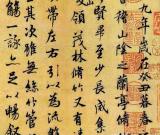 九年歲在癸丑暮春
稽山陰之蘭亭脩
畢至少長咸集
領茂林脩竹
帶左右引以為流
其次雖無絲竹管
觴一詠亦足以暢敘